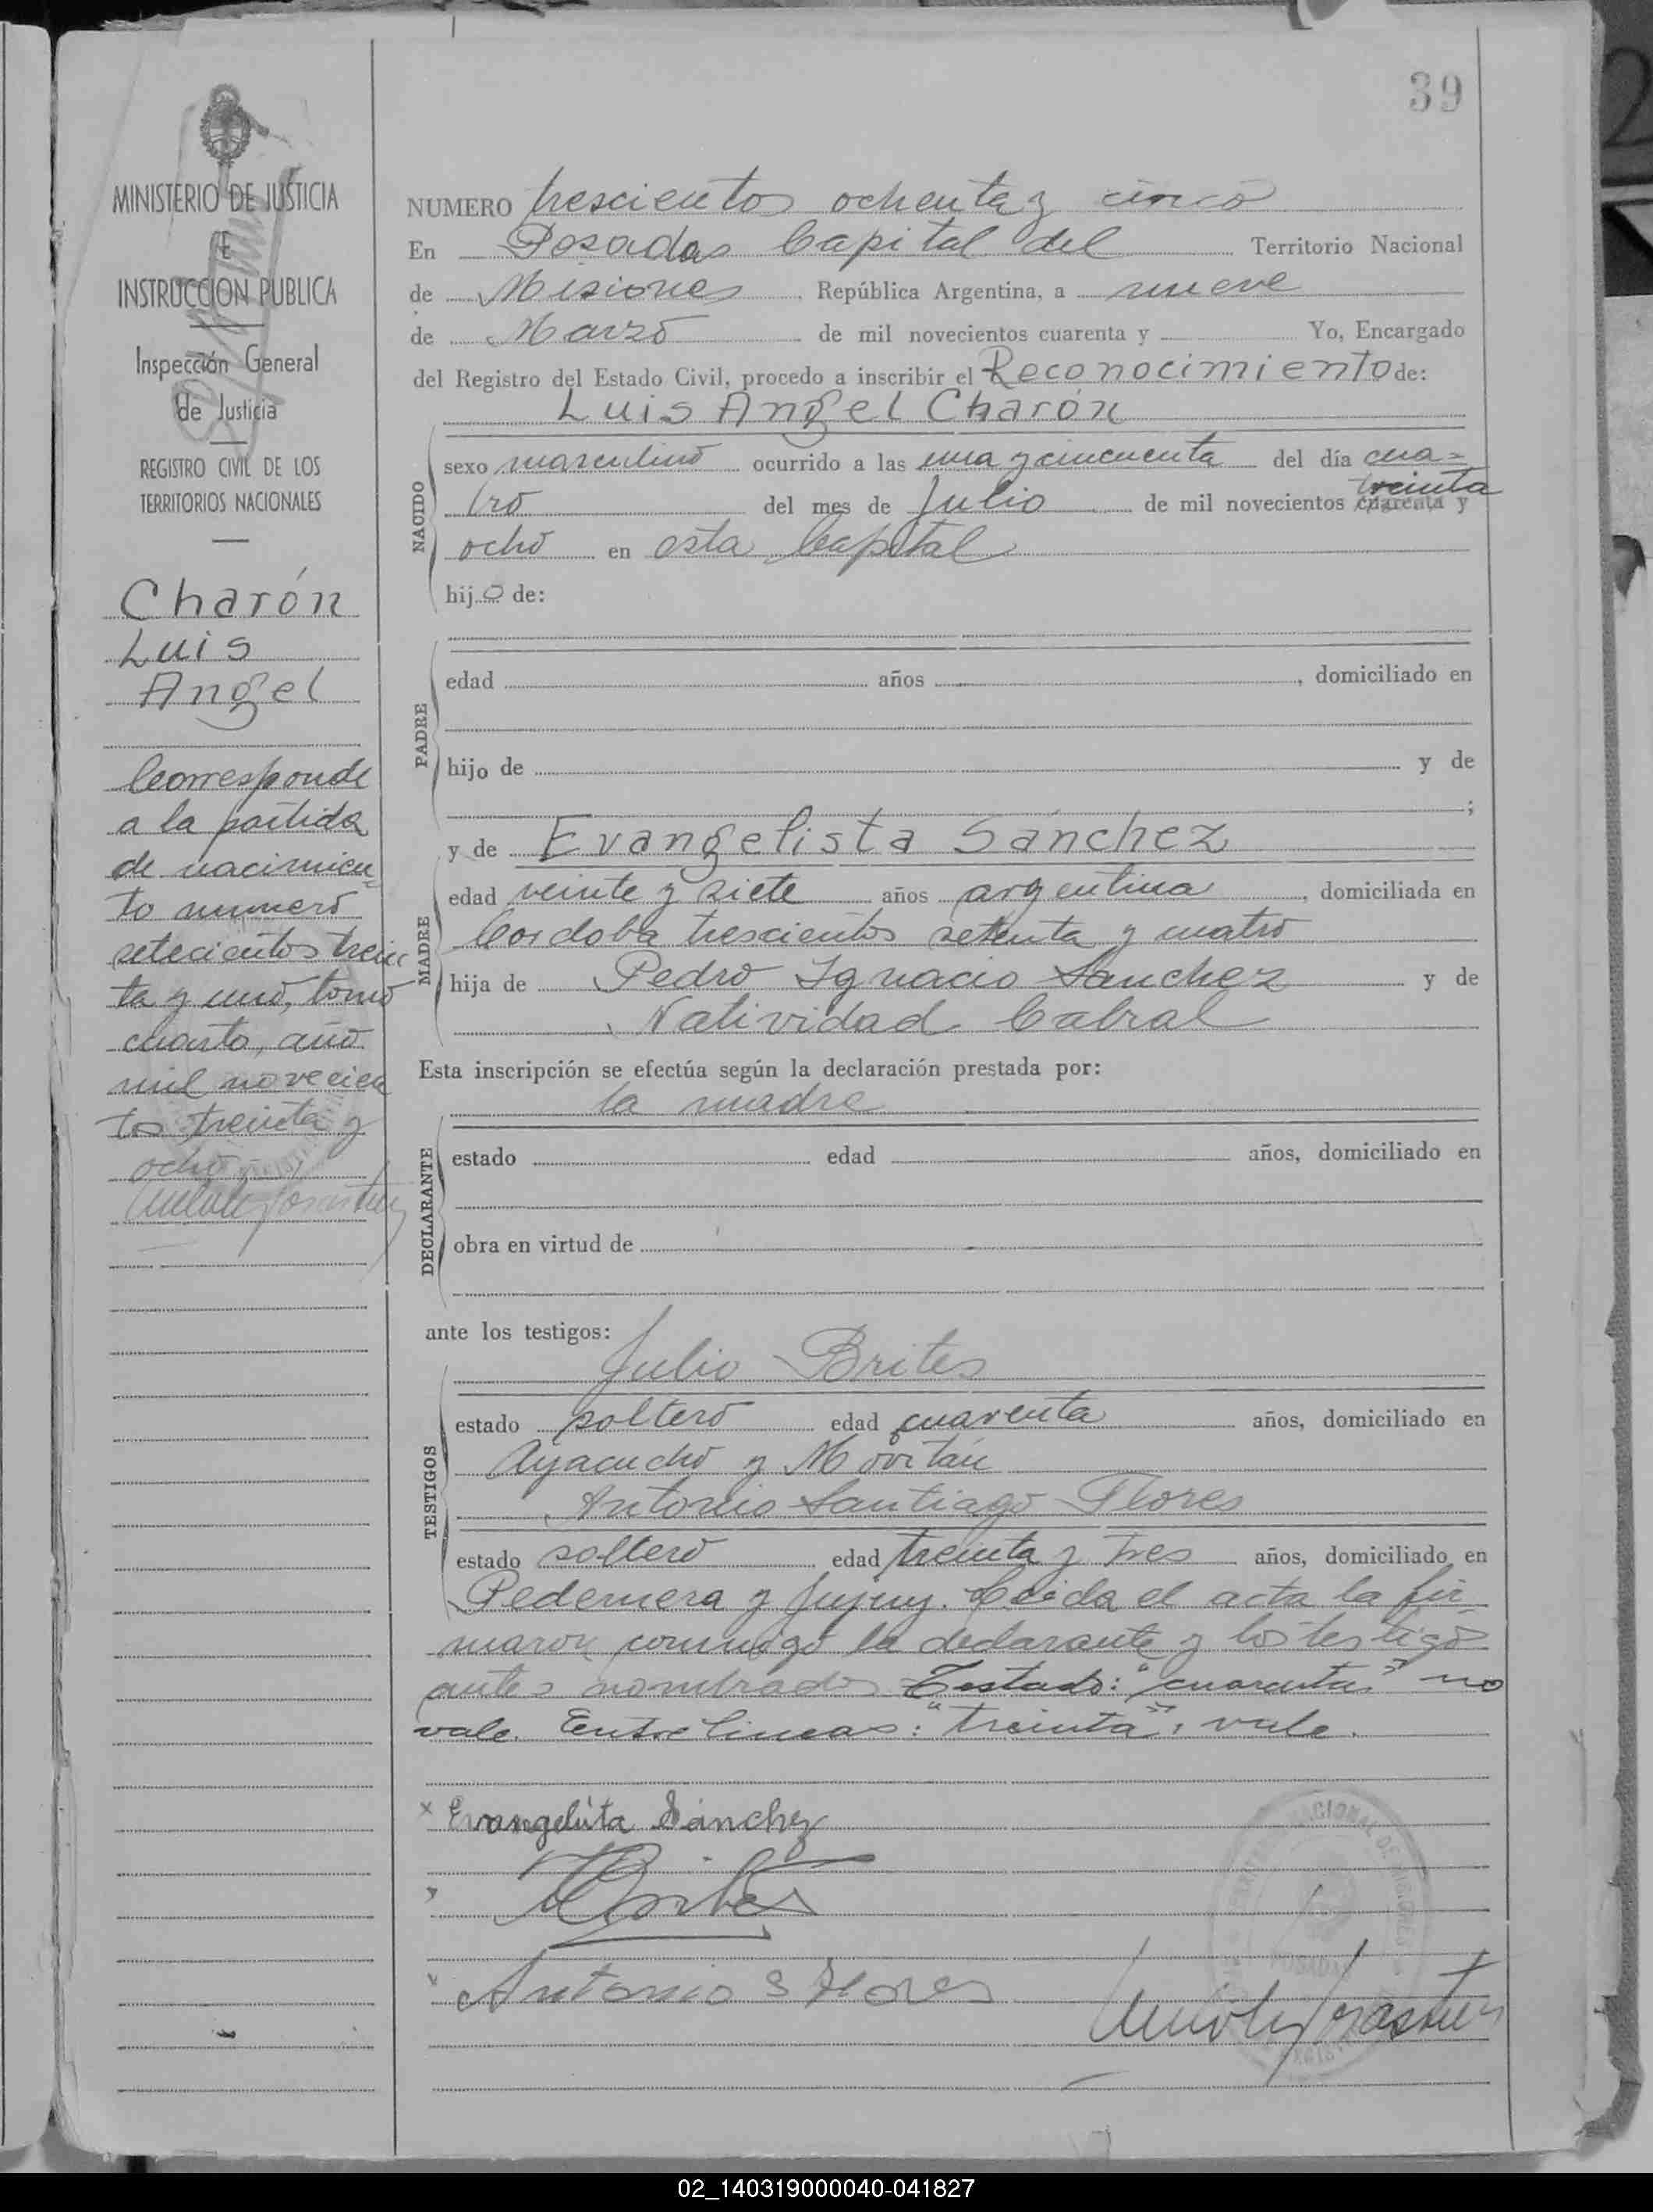 39
MINISTERIO DE JUSTICIA
E
INSTRUCCION PUBLICA
Inspección General
de Justicia
REGISTRO CIVIL DE LOS
TERRITORIOS NACIONALES
Charón
Luis
Angel
Corresponde
a la partida
de nacimien
to numero
setecientos trein
ta y uno, tomo
cuarto, año
mil novecien
tos treinta y
ocho
NUMERO trescientos ochenta y cinco
En Posadas Capital del Territorio Nacional
de Misiones, República Argentina, a nueve
de Marzo de mil novecientos cuarenta y Yo, Encargado
del Registro del Estado Civil, procedo a inscribir el Reconocimiento de:
Luis Angel Charón
NACIDO
sexo masculino ocurrido a las una y cincuenta del día cua=
treinta
tro del mes de Julio de mil novecientos cuarenta y
ocho en esta Capital
hijo de:
PADRE
edad años , domiciliado en
hijo de y de
;
y de Evangelista Sánchez
MADRE
edad veinte y siete años argentina, domiciliada en
Cordoba trescientos setenta y cuatro
hija de Pedro Ignacio Sanchez y de
Natividad Cabral
Esta inscripción se efectúa según la declaración prestada por:
la madre
DECLARANTE
estado edad años, domiciliado en
obra en virtud de
ante los testigos:
Julio Brites
TESTIGOS
estado soltero edad cuarenta años, domiciliado en
Ayacucho y
Antonio Santiago Flores
estado soltero edad treinta y tres años, domiciliado en
Pedernera y Jujuy. Leida el acta la fir
maron conmigo la declarante y los testigos
antes nombrados Testado: "cuarenta" no
vale. Entre lineas: "treinta", vale.
x Evangelista Sánchez
Brites
Antonio S Flores
POSADAS
02_140319000040-041827